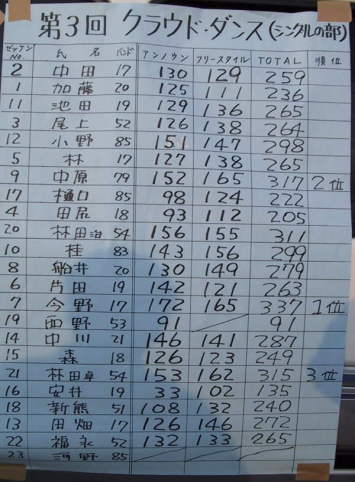 第3回 クラウド・ダンス (シングルの部)
ゼッケンNo. 氏名 バンド アンノウン フリースタイル TOTAL 順位
2 中田 17 130 129 259
1 加藤 20 125 111 236
11 池田 19 129 136 265
3 尾上 52 126 138 264
12 小野 85 151 147 298
5 林 17 127 138 265
9 中原 79 152 165 317 2位
17 樋口 85 98 124 222
4 田尻 18 93 112 205
20 林田治 54 156 155 311
10 桂 83 143 156 299
8 船井 20 130 149 279
6 片田 19 142 121 263
7 今野 17 172 165 337 1位
19 西野 53 91 91
14 中川 21 146 141 287
15 森 18 126 123 249
21 林田卓 54 153 162 315 3位
16 安井 19 33 102 135
18 新熊 51 108 132 240
13 田畑 17 126 146 272
22 福永 52 132 133 265
23 野 85